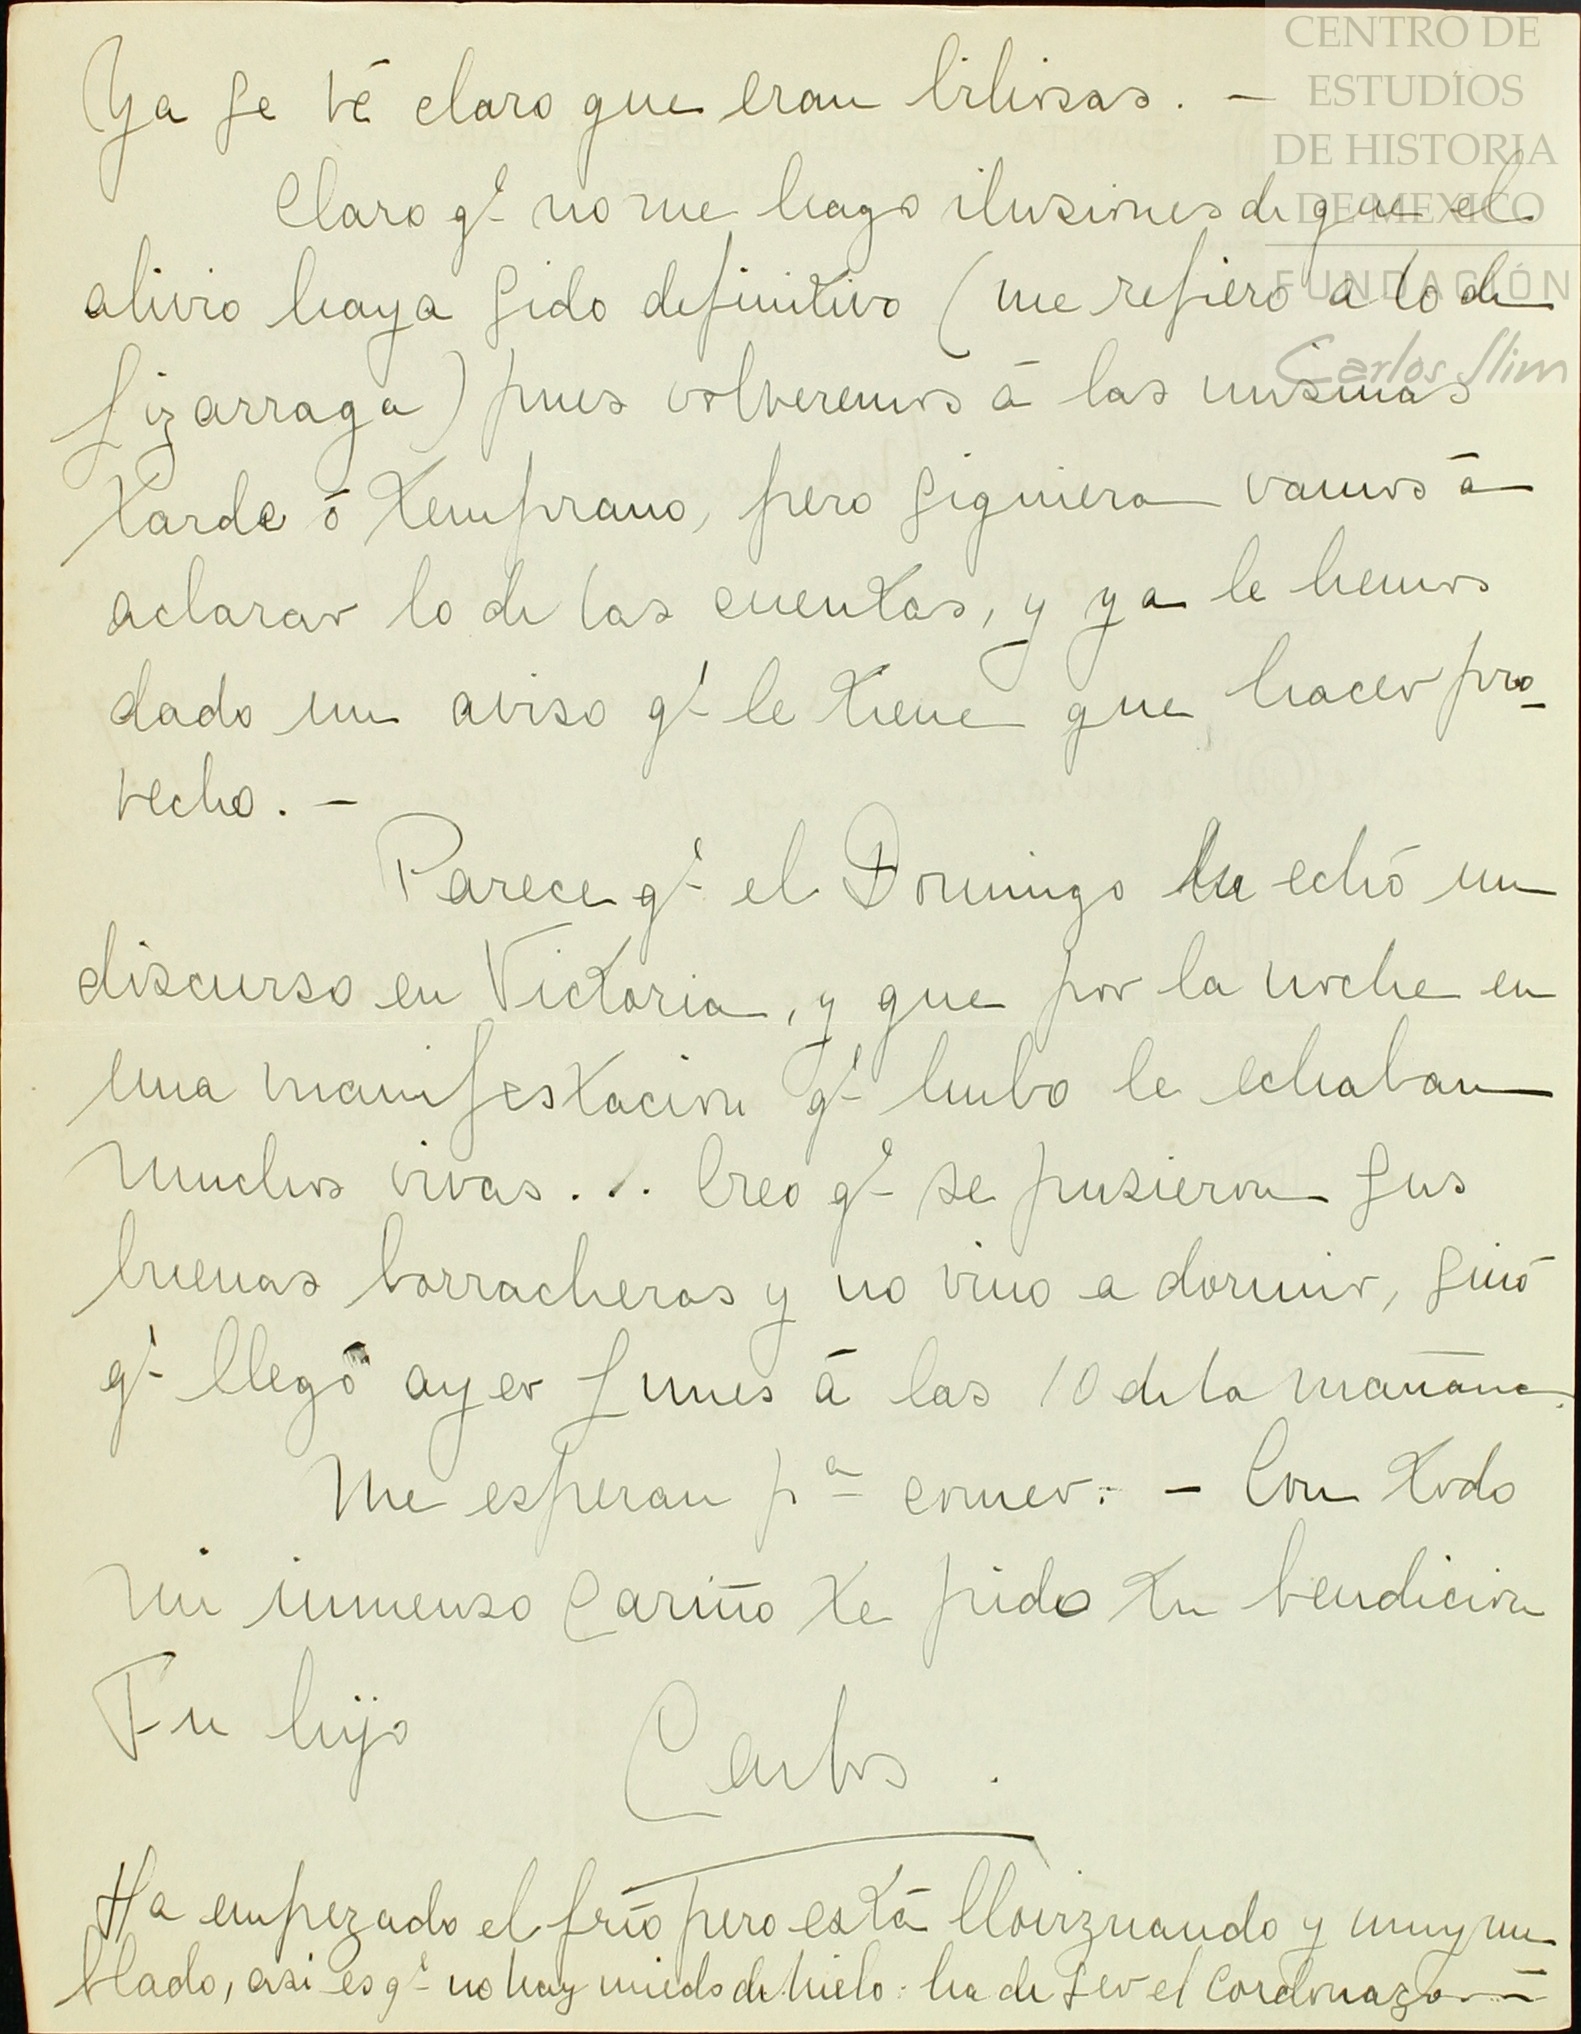 CENTRO DE
ESTUDIOS
DE HISTORIA
DE MEXICO
FUNDACIÓN
Carlos Slim
Ya se vé claro que eran biliosas. —
Claro qe no me hago ilusiones de que el
alivio haya sido definitivo (me refiero a lo de
Lizarraga) pues volveremos á las mismas
tarde ó temprano, pero siquiera vamos á
aclarar lo de las cuentas, y ya le hemos
dado un aviso qe le tiene que hacer pro-
vecho. —
Parece qe el Domingo echó un
discurso en Victoria, y que por la noche en
una manifestacion qe hubo le echaban
muchos vivas... Creo qe se pusieron sus
buenas borracheras y no vino a dormir, sinó
qe llegó ayer Lunes á las 10 de la mañana.
Me esperan pa comer. — Con todo
mi inmenso cariño te pido tu bendicion
Tu hijo Carlos.
Ha empezado el frío pero está lloviznando y muy nu
blado, asi es qe no hay miedo de hielo. ha de ser el Cordonazo —